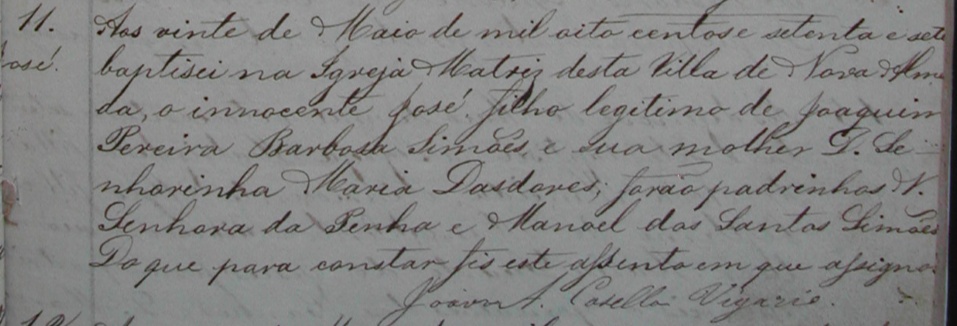 11.
Aos vinte de Maio de mil oito centos e setenta e sete
osé.
baptisei na Igreja Matriz desta Villa de Nova Alme
da, o innocente José filho legitimo de Joaquim
Pereira Barbosa Simões e sua molher D. Se
nhorinha Maria Dasdores; forão padrinhos N.
Senhora da Penha e Manoel dos Santos Simões
Do que para constar fis este assento em que assigno.
Casella Vigario.